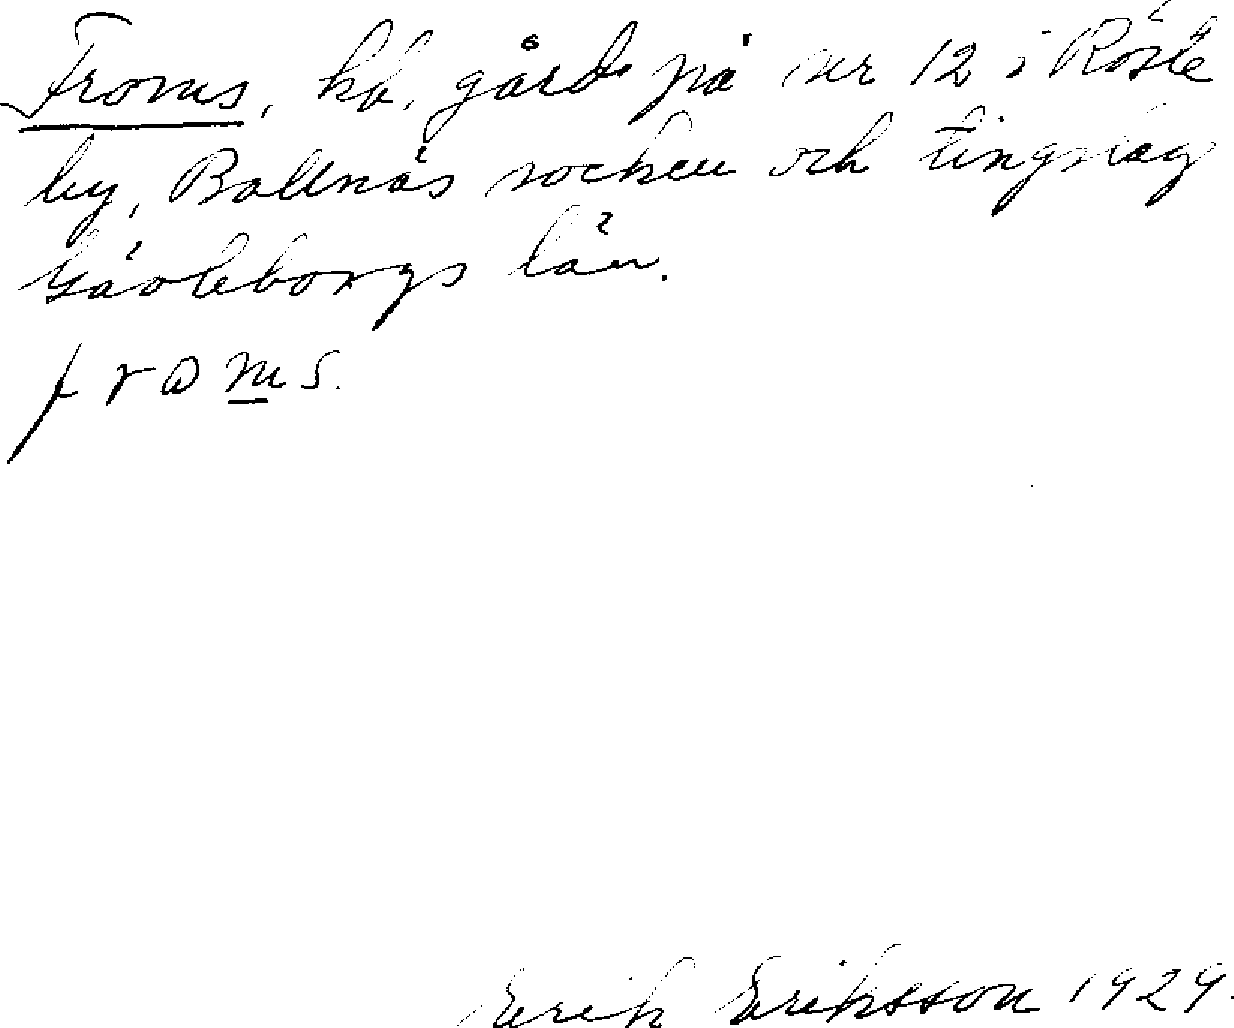 Froms, kb, gård på nr 12 i Röste
by, Bollnäs socken och tingslag
Gävleborgs län.
froms.
Erik Eriksson 1929.